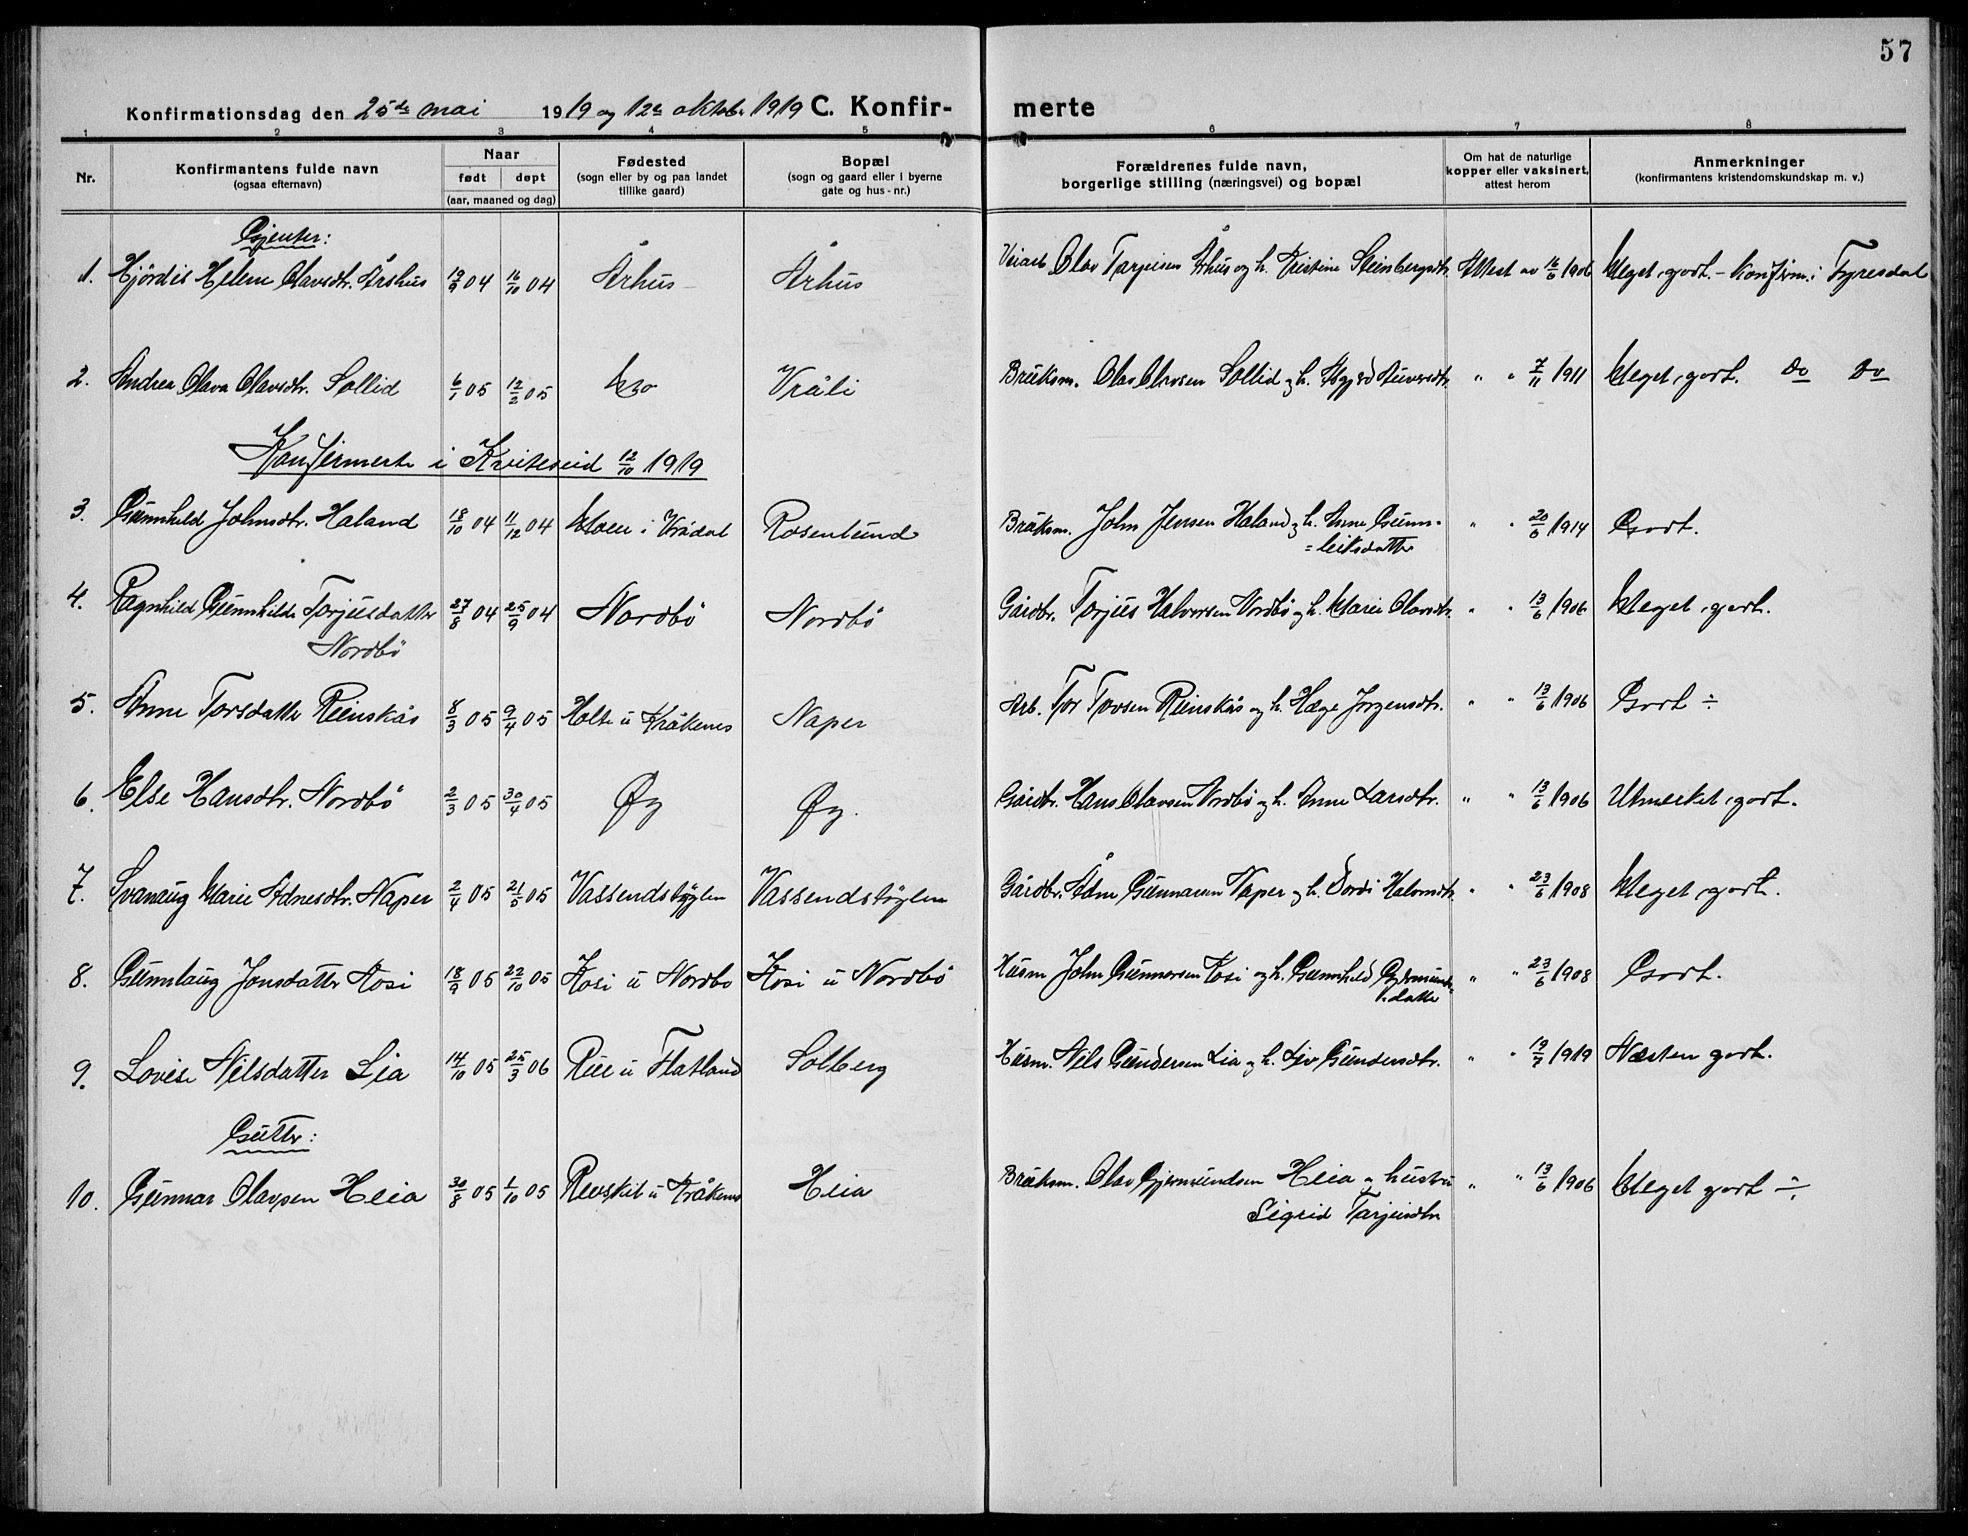 57
Konfirmationsdag den 25de mai 1919 og 12te oktober 1919 C. Konfir- merte
1 2 3 4 5 6 7 8
Nr. Konfirmantens fulde navn (ogsaa efternavn) Naar født døpt (aar, maaned og dag) Fødested (sogn eller by og paa landet tillike gaard) Bopæl (sogn og gaard eller i byerne gate og hus-nr.) Forældrenes fulde navn, borgerlige stilling (næringsvei) og bopæl Om hat de naturlige kopper eller vaksinert, attest herom Anmerkninger (konfirmantens kristendomskundskap m. v.)
Gjenter:
1. Hjördis Helene Olavsdtr. Århus 19/9 04 16/10 04 Århus Århus Veiarb. Olav Tarjeisen Århus og h. Kristine Steinbergsdtr. Attest av 16/6 1906 Meget godt. - Konfirm. i Fyresdal
2. Andrea Olava Olavsdtr. Sollid 6/1 05 12/2 05 Mo Vråli Bruksm. Olav Olavsen Sollid og h. Asgjerd " " 7/11 1911 Meget godt. Do Do
Konfirmerte i Kviteseid 12/10 1919
3. Gunnhild Johnsdtr. Haland 18/10 04 11/12 04 Moen i Vrådal Rosenlund Bruksm. John Jensen Haland og h. Anne Gunn-
=leiksdatter " " 20/6 1914 Godt.
4. Ragnhild Gunnhilda Torjusdatter
Nordbö 27/8 04 25/9 04 Nordbö Nordbö Gårdbr. Torjus Halvorsen Nordbö og h. Marie Olavsdtr. " " 13/6 1906 Meget godt.
5. Anne Torsdatter Reinskås 8/3 05 9/4 05 Holte u Kråkenes Naper Arb. Tor Tovsen Reinskås og h. Hæge Jörgensdtr. " " 13/6 1906 Godt ÷
6. Else Hansdtr. Nordbö 2/3 05 30/4 05 Øy Øy. Gårdbr. Hans Olavsen Nordbö og h. Anne Larsdtr. " " 13/6 1906 Utmerket godt.
7. Svanaug Marie Adnesdtr. Naper 2/4 05 21/5 05 Vassendstöylen Vassendstöylen Gårdbr. Ådne Gunnarsen Naper og h. Dordi Halvorsdtr. " " 23/6 1908 Meget godt.
8. Gunnlaug Jonsdatter Kosi 18/9 05 22/10 05 Kosi u Nordbö Kosi u Nordbö Husm John Gunnarsen Kosi og h. Gunnhild Gjermunds-
datter " " 23/6 1908 Godt.
9. Lovise Nilsdatter Lia 14/10 05 25/3 06 Rue u Flatland Solberg Husm. Nils Gundersen Lia og h. Liv Gundersdtr. " " 19/7 1919 Næsten godt.
Gutter:
10. Gunnar Olavsen Heia 30/8 05 1/10 05 Revskil u Kråkenes Heia Bruksm. Olav Gjermundsen Heia og hustru
Sigrid Tarjeisdtr " " 13/6 1906 Meget godt ÷